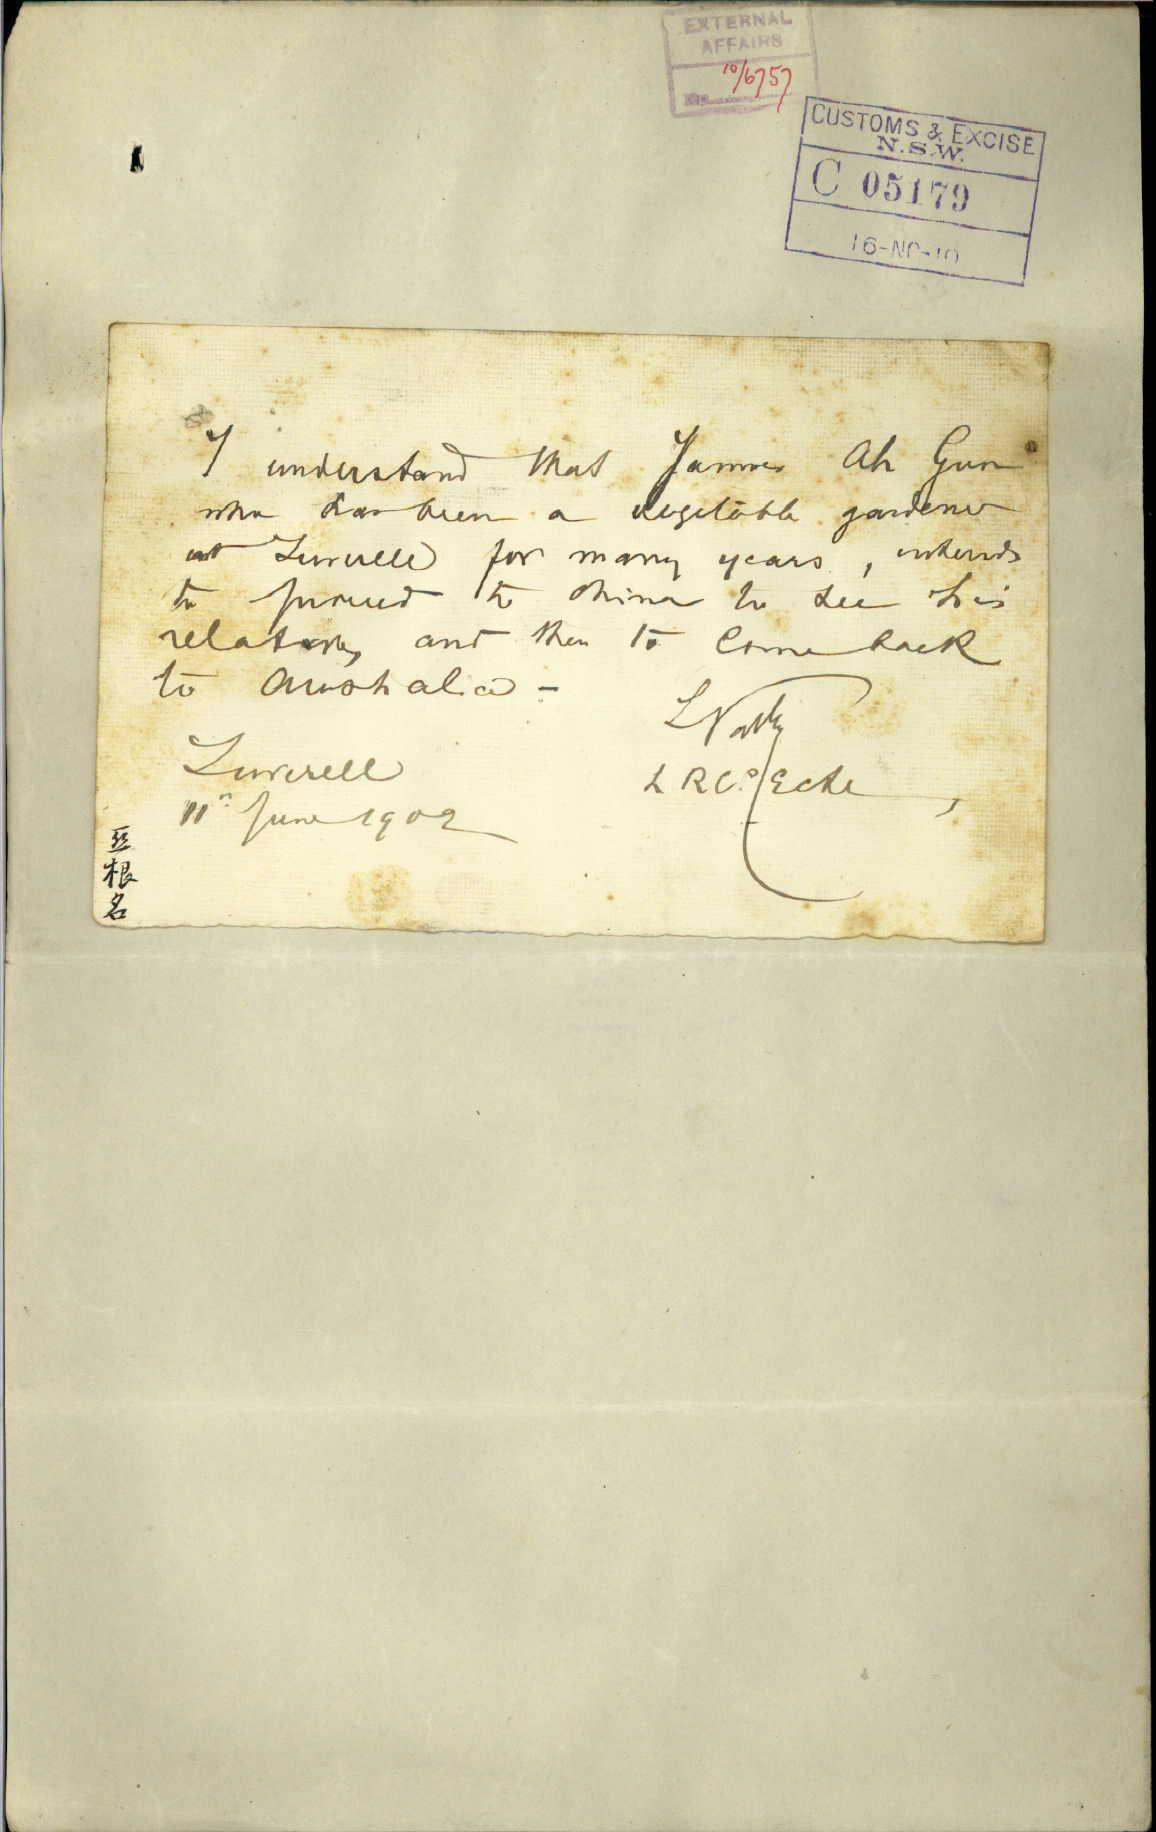 EXTERNAL
AFFAIRS
No. 10/6757
CUSTOMS & EXCISE
N.S.W.
C 05179
16-NO-10
I understand that James Ah Gun
who has been a vegetable gardener
at Inverell for many years, intends
to proceed to China to see his
relatives and then to come back
to Australia -
L R C P Edin
Inverell
11th June 1902
亞根名